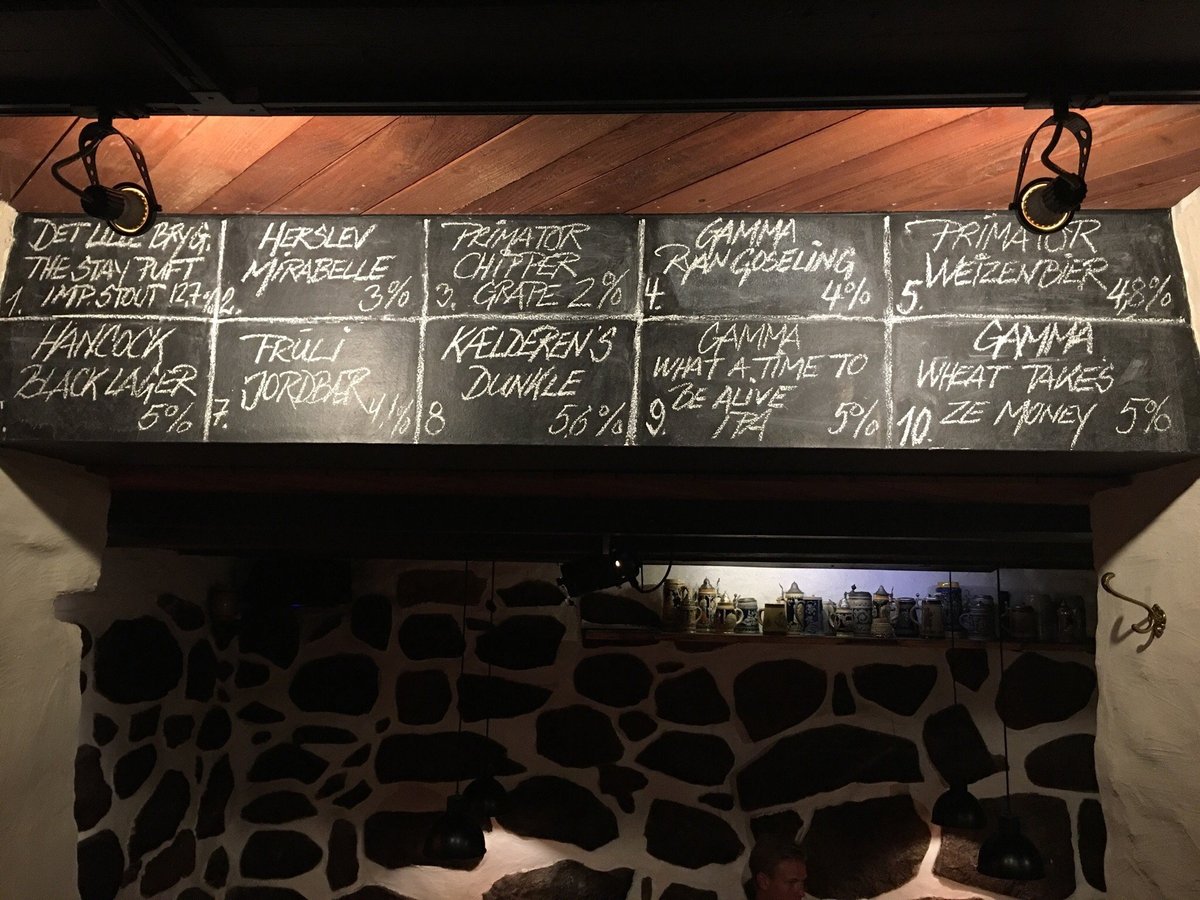 DET LILLE BRYG.
THE STAY PUFT
1. IMP. STOUT 12,7%
HERSLEV
MIRABELLE
2. 3%
PRIMATOR
CHIPPER
3. GRAPE 2%
GAMMA
RYAN GOSELING
4. 4%
PRIMATOR
WEIZENBIER
5. 4,8%
HANCOCK
BLACK LAGER
5%
FRÜLI
JORDBÆR
7. 4,1%
KÆLDEREN'S
DUNKLE
8 5,6%
GAMMA
WHAT A TIME TO
BE ALIVE
9. IPA 5%
GAMMA
WHEAT TAKES
10. ZE MONEY 5%